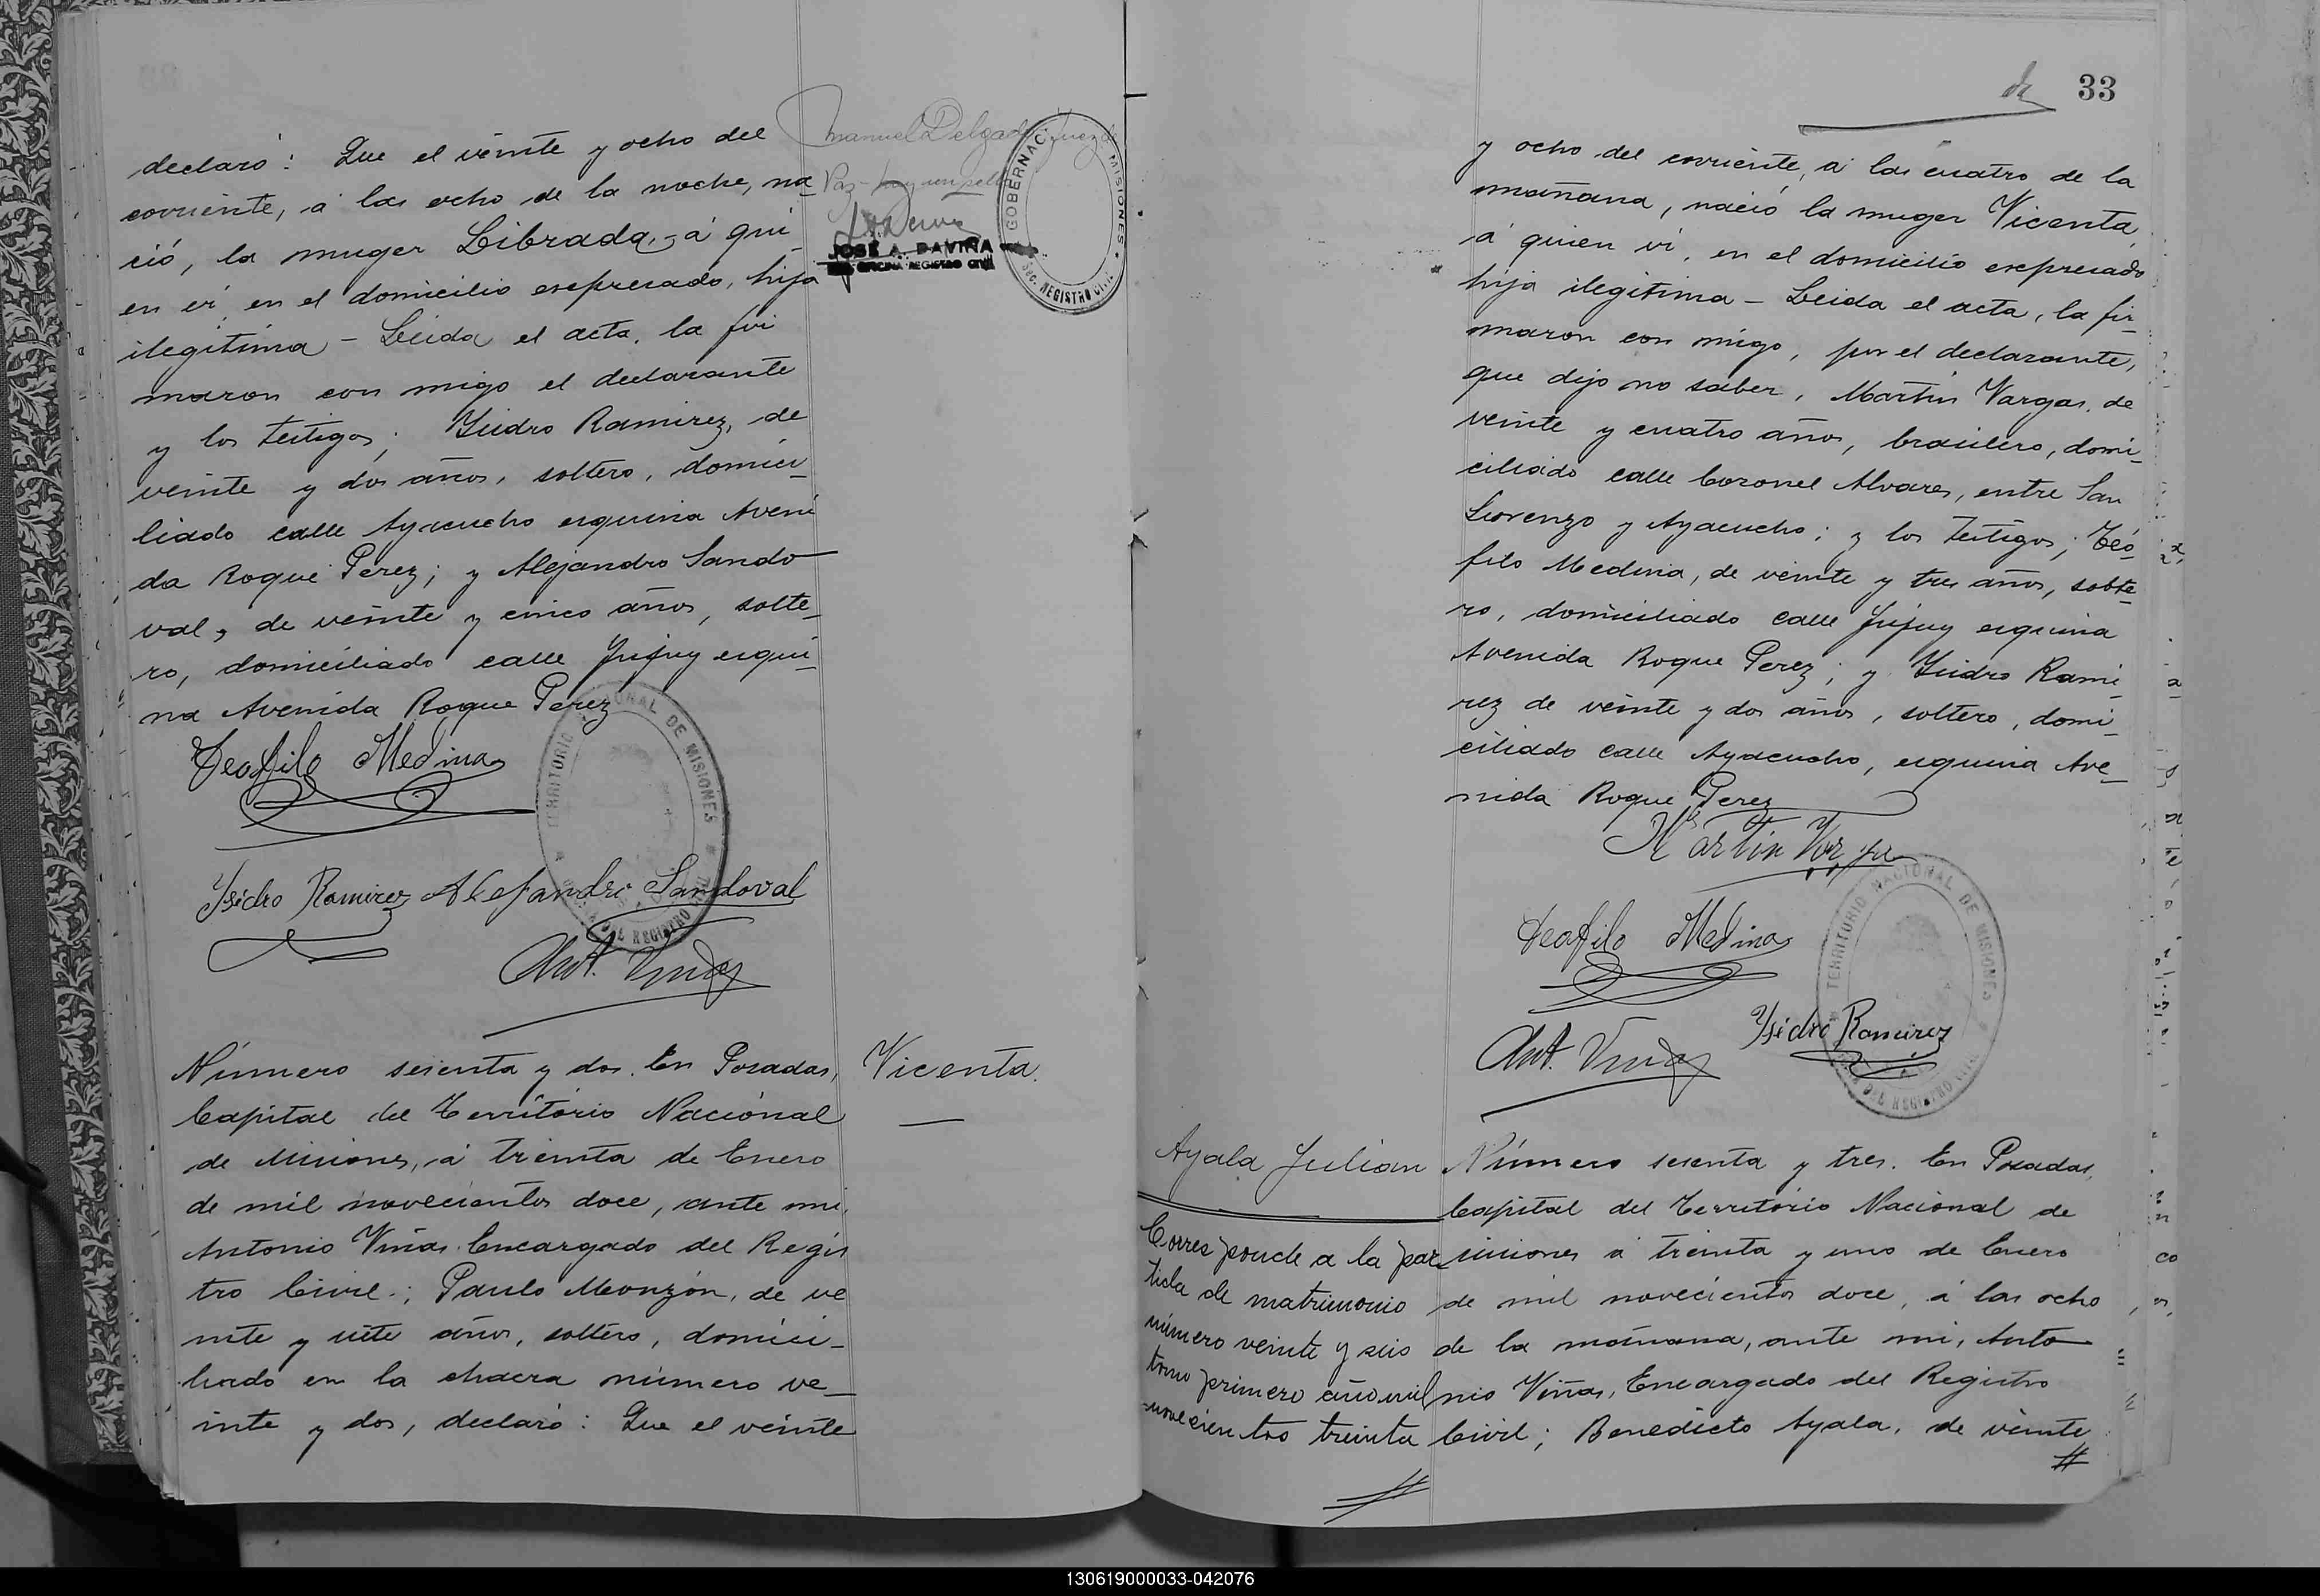 declaró: Que el veinte y ocho del
corriente, á las ocho de la noche, na_
ció, la muger Librada, á qui_
en ví, en el domicilio esepresado, hija
ilegítima - Leida el acta, la fir
maron con migo el declarante
y los testigos; Ysidro Ramirez, de
veinte y dos años, soltero, domici_
liado calle Ayacucho esquina Aveni
da Roque Perez; y Alejandro Sando
val, de veinte y cinco años, solte_
ro, domiciliado calle Jujuy esqui_
na Avenida Roque Perez
Manuel Delgado Juez de
Paz
JOSÉ A. DAVIÑA
OFICINA REGISTRO CIVIL
GOBERNAC MISIONES
SEC. REGISTRO CIVIL
Teofilo Medina
TERRITORIO NACIONAL DE MISIONES
DEL REGISTRO CIVIL
Ysidro Ramirez Alejandro Sandoval
Ant. Viñas
Vicenta.
Número sesenta y dos. En Posadas,
Capital del Territorio Nacional
de Misiones, á treinta de Enero
de mil novecientos doce, ante mi,
Antonio Viñas Encargado del Regis
tro Civil; Paulo Monzón, de ve
inte y siete años, soltero, domici_
liado en la chacra número ve_
inte y dos, declaró: Que el veinte
33
y ocho del corriente, á las cuatro de la
mañana, nació la muger Vicenta,
á quien ví, en el domicilio esepresado
hija ilegítima - Leida el acta, la fir_
maron con migo, por el declarante,
que dijo no saber, Martin Vargas, de
veinte y cuatro años, brasilero, domi_
ciliado calle Coronel Alvares, entre San
Lorenzo y Ayacucho; y los testigos; Teó_
filo Medina, de veinte y tres años, solte_
ro, domiciliado calle Jujuy esquina
Avenida Roque Perez; y Ysidro Rami_
rez de veinte y dos años, soltero, domi_
ciliado calle Ayacucho, esquina Ave_
nida Roque Perez
Martin Vargas
Teofilo Medina
TERRITORIO NACIONAL DE MISIONES
DEL REGISTRO CIVIL
Ysidro Ramirez
Ant. Viñas
Ayala Julian
Corresponde a la par_
tida de matrimonio
número veinte y seis
tomo primero año mil
novecientos treinta
Número sesenta y tres. En Posadas,
Capital del Territorio Nacional de
Misiones á treinta y uno de Enero
de mil novecientos doce, á las ocho
de la mañana, ante mi, Anto
nio Viñas, Encargado del Registro
Civil; Benedicto Ayala, de veinte
130619000033-042076